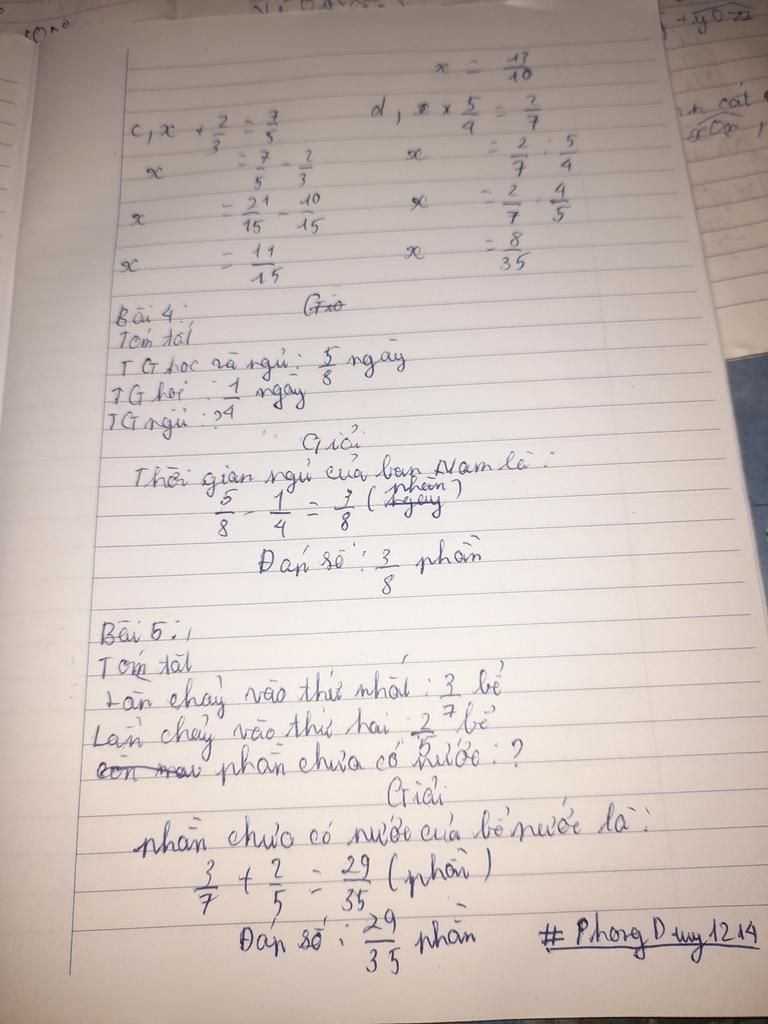 x = 13/10
c, x + 2/3 = 7/5
x = 7/5 - 2/3
x = 21/15 - 10/15
x = 11/15
d, x × 5/4 = 2/7
x = 2/7 : 5/4
x = 2/7 . 4/5
x = 8/35
Bài 4:
Tóm tắt
TG học và ngủ: 5/8 ngày
TG học : 1/4 ngày
TG ngủ : ?
Giải
Thời gian ngủ của bạn Nam là :
5/8 - 1/4 = 3/8 (phần)
Đáp số : 3/8 phần
Bài 5:
Tóm tắt
Lần chảy vào thứ nhất : 3/7 bể
Lần chảy vào thứ hai : 2/5 bể
phần chưa có nước : ?
Giải
phần chưa có nước của bể nước là :
3/7 + 2/5 = 29/35 (phần)
Đáp số : 29/35 phần
# PhongDuy1214